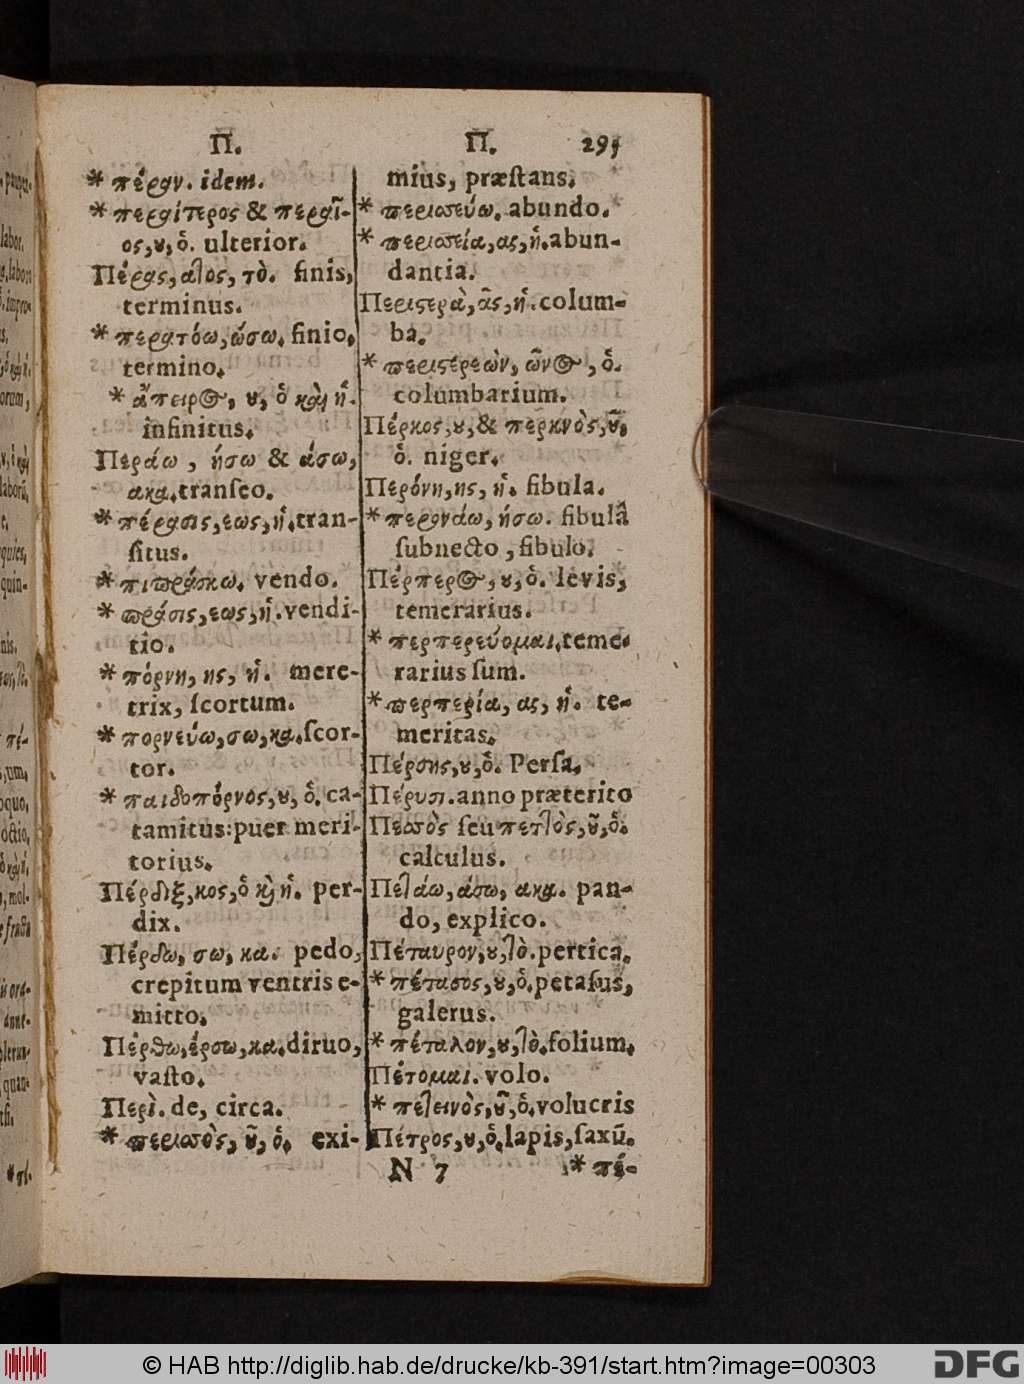 Π.
* πέραν. idem.
* περαίτερος & περαῖ-
ος, ȣ, ὁ. ulterior.
Πέρας, ατος, τὸ. finis,
terminus.
* περατόω, ώσω. finio,
termino.
* ἄπειρος, ȣ, ὁ καὶ ἡ.
infinitus.
Περάω, ήσω & άσω,
ακα. tranſeo.
* πέρασις, εως, ἡ. tran-
ſitus.
* πιπράσκω. vendo.
* πράσις, εως, ἡ. vendi-
tio.
* πόρνη, ης, ἡ. mere-
trix, ſcortum.
* πορνεύω, σω, κα. ſcor-
tor.
* παιδοπόρνος, ȣ, ὁ. ca-
tamitus: puer meri-
torius.
Πέρδιξ, κος, ὁ καὶ ἡ. per-
dix.
Πέρδω, σω, κα. pedo,
crepitum ventris e-
mitto.
Πέρθω, έρσω, κα. diruo,
vaſto.
Περὶ. de, circa.
* περισσὸς, ȣ͂, ὁ. exi-
Π. 295
mius, præſtans.
* περισσεύω. abundo.
* περισσεία, ας, ἡ. abun-
dantia.
Περιστερὰ, ᾶς, ἡ. colum-
ba.
* περιστερεὼν, ῶνος, ὁ.
columbarium.
Πέρκος, ȣ, & περκνὸς, ȣ͂,
ὁ. niger.
Περόνη, ης, ἡ. fibula.
* περονάω, ήσω. fibulâ
ſubnecto, fibulo.
Πέρπερος, ȣ, ὁ. levis,
temerarius.
* περπερεύομαι. teme-
rarius ſum.
* περπερία, ας, ἡ. te-
meritas.
Πέρσης, ȣ, ὁ. Perſa.
Πέρυσι. anno præterito
Πεσσὸς ſeu πεττὸς, ȣ͂, ὁ.
calculus.
Πετάω, άσω, ακα. pan-
do, explico.
Πέταυρον, ȣ, τὸ. pertica.
* πέτασος, ȣ, ὁ. petaſus,
galerus.
* πέταλον, ȣ, τὸ. folium.
Πέτομαι. volo.
* πετεινὸς, ȣ͂, ὁ. volucris
Πέτρος, ȣ, ὁ. lapis, ſaxũ.
N 7 * πέ-
© HAB http://diglib.hab.de/drucke/kb-391/start.htm?image=00303
DFG